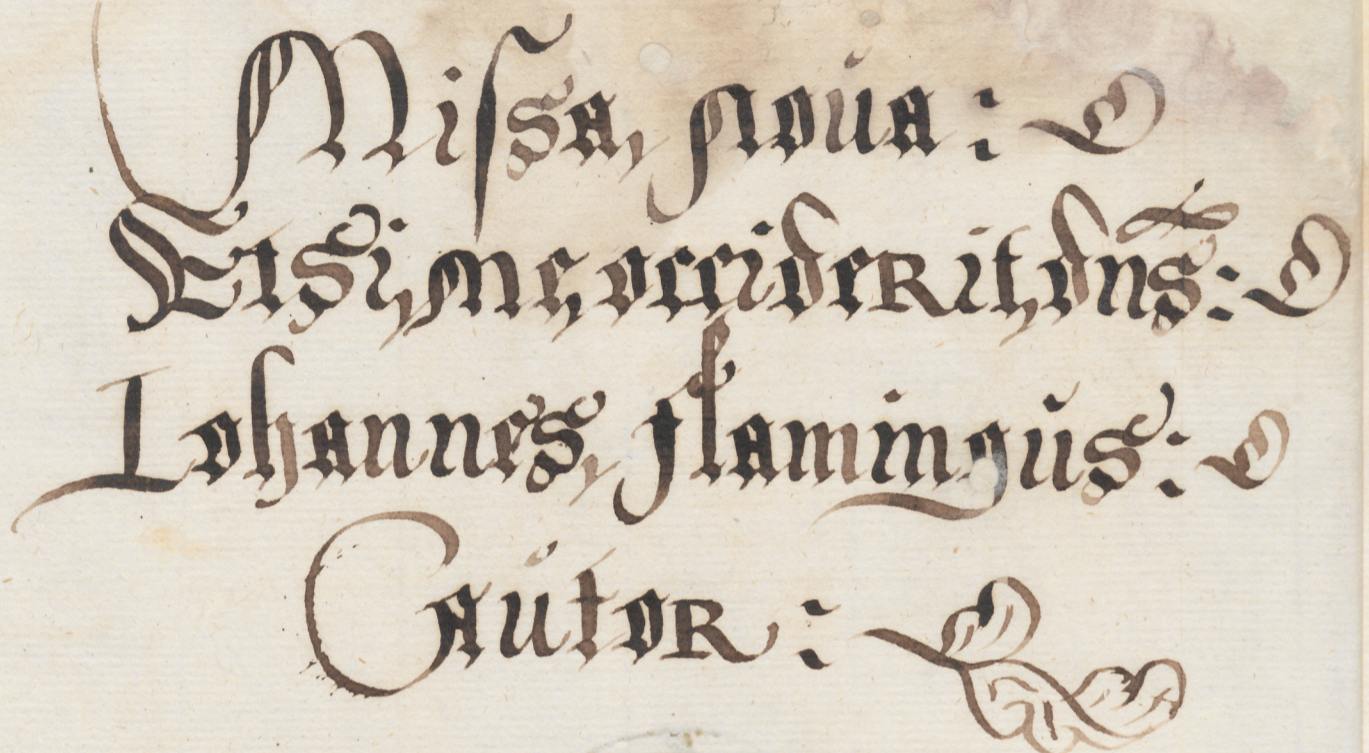 Missa, noua:
Etsi, me, occiderit, dns:
Iohannes, flamingus:
autor: